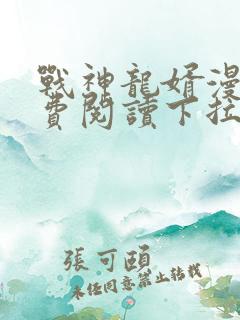 戰神龍婿漫
費閱讀下拉
張可頤
未經同意禁止轉載